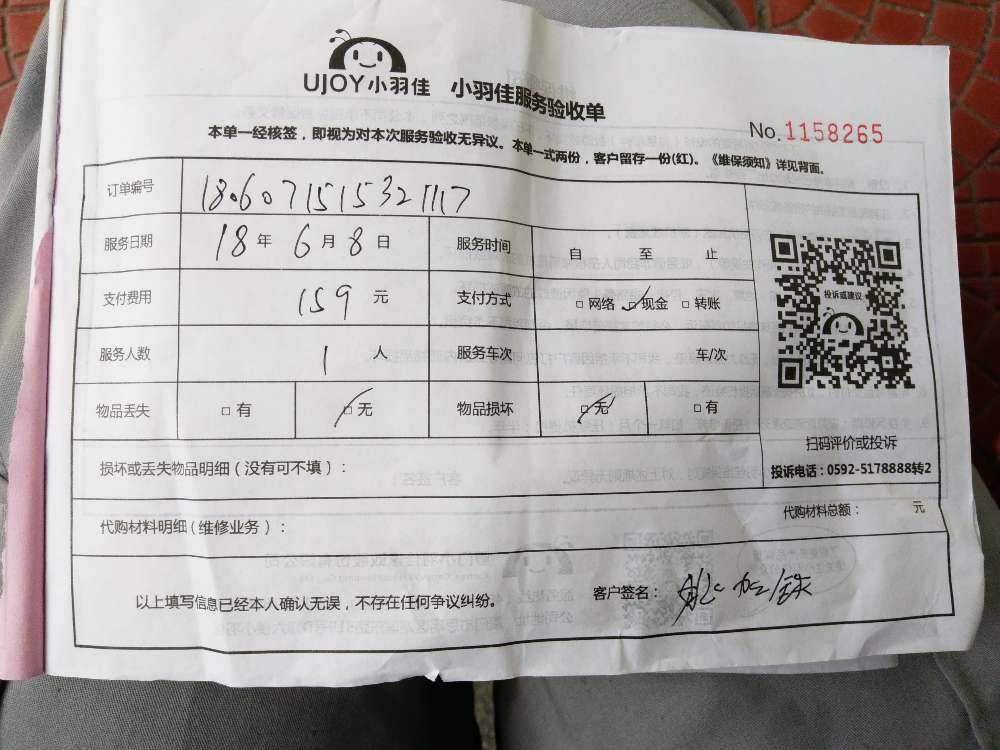 UJOY小羽佳 小羽佳服务验收单
No.1158265
本单一经核签，即视为对本次服务验收无异议。本单一式两份，客户留存一份(红)。《维保须知》详见背面。
订单编号 1806071515321117
服务日期 18 年 6 月 8 日 服务时间 自 至 止
支付费用 159 元 支付方式 □ 网络 □ 现金 □ 转账
服务人数 1 人 服务车次 车/次
物品丢失 □ 有 □ 无 物品损坏 □ 无 □ 有
投诉或建议
扫码评价或投诉
投诉电话：0592-5178888转2
损坏或丢失物品明细（没有可不填）：
代购材料明细(维修业务)： 代购材料总额： 元
以上填写信息已经本人确认无误，不存在任何争议纠纷。 客户签名：